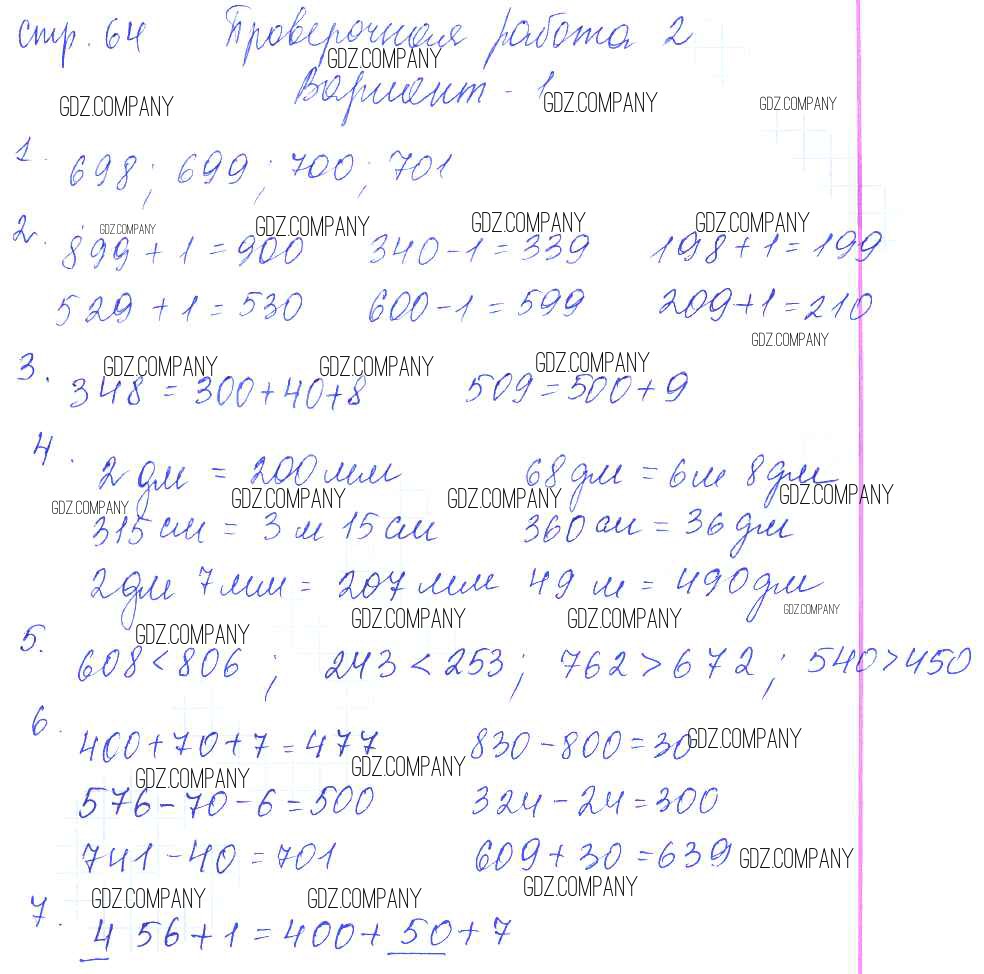 стр. 64 Проверочная работа 2
GDZ.COMPANY
Вариант - 1
GDZ.COMPANY GDZ.COMPANY GDZ.COMPANY
1. 698; 699; 700; 701
GDZ.COMPANY GDZ.COMPANY GDZ.COMPANY GDZ.COMPANY
2. 899 + 1 = 900 340 - 1 = 339 198 + 1 = 199
529 + 1 = 530 600 - 1 = 599 209 + 1 = 210
GDZ.COMPANY
GDZ.COMPANY GDZ.COMPANY GDZ.COMPANY
3. 348 = 300 + 40 + 8 509 = 500 + 9
4. 2 дм = 200 мм 68 дм = 6 м 8 дм
GDZ.COMPANY GDZ.COMPANY GDZ.COMPANY GDZ.COMPANY
315 см = 3 м 15 см 360 см = 36 дм
2 дм 7 мм = 207 мм 49 м = 490 дм
GDZ.COMPANY GDZ.COMPANY GDZ.COMPANY GDZ.COMPANY
5. 608 < 806 ; 243 < 253 ; 762 > 672 ; 540 > 450
6. 400 + 70 + 7 = 477 830 - 800 = 30 GDZ.COMPANY
GDZ.COMPANY GDZ.COMPANY
576 - 70 - 6 = 500 324 - 24 = 300
741 - 40 = 701 609 + 30 = 639 GDZ.COMPANY
GDZ.COMPANY GDZ.COMPANY GDZ.COMPANY
7. 4 56 + 1 = 400 + 50 + 7